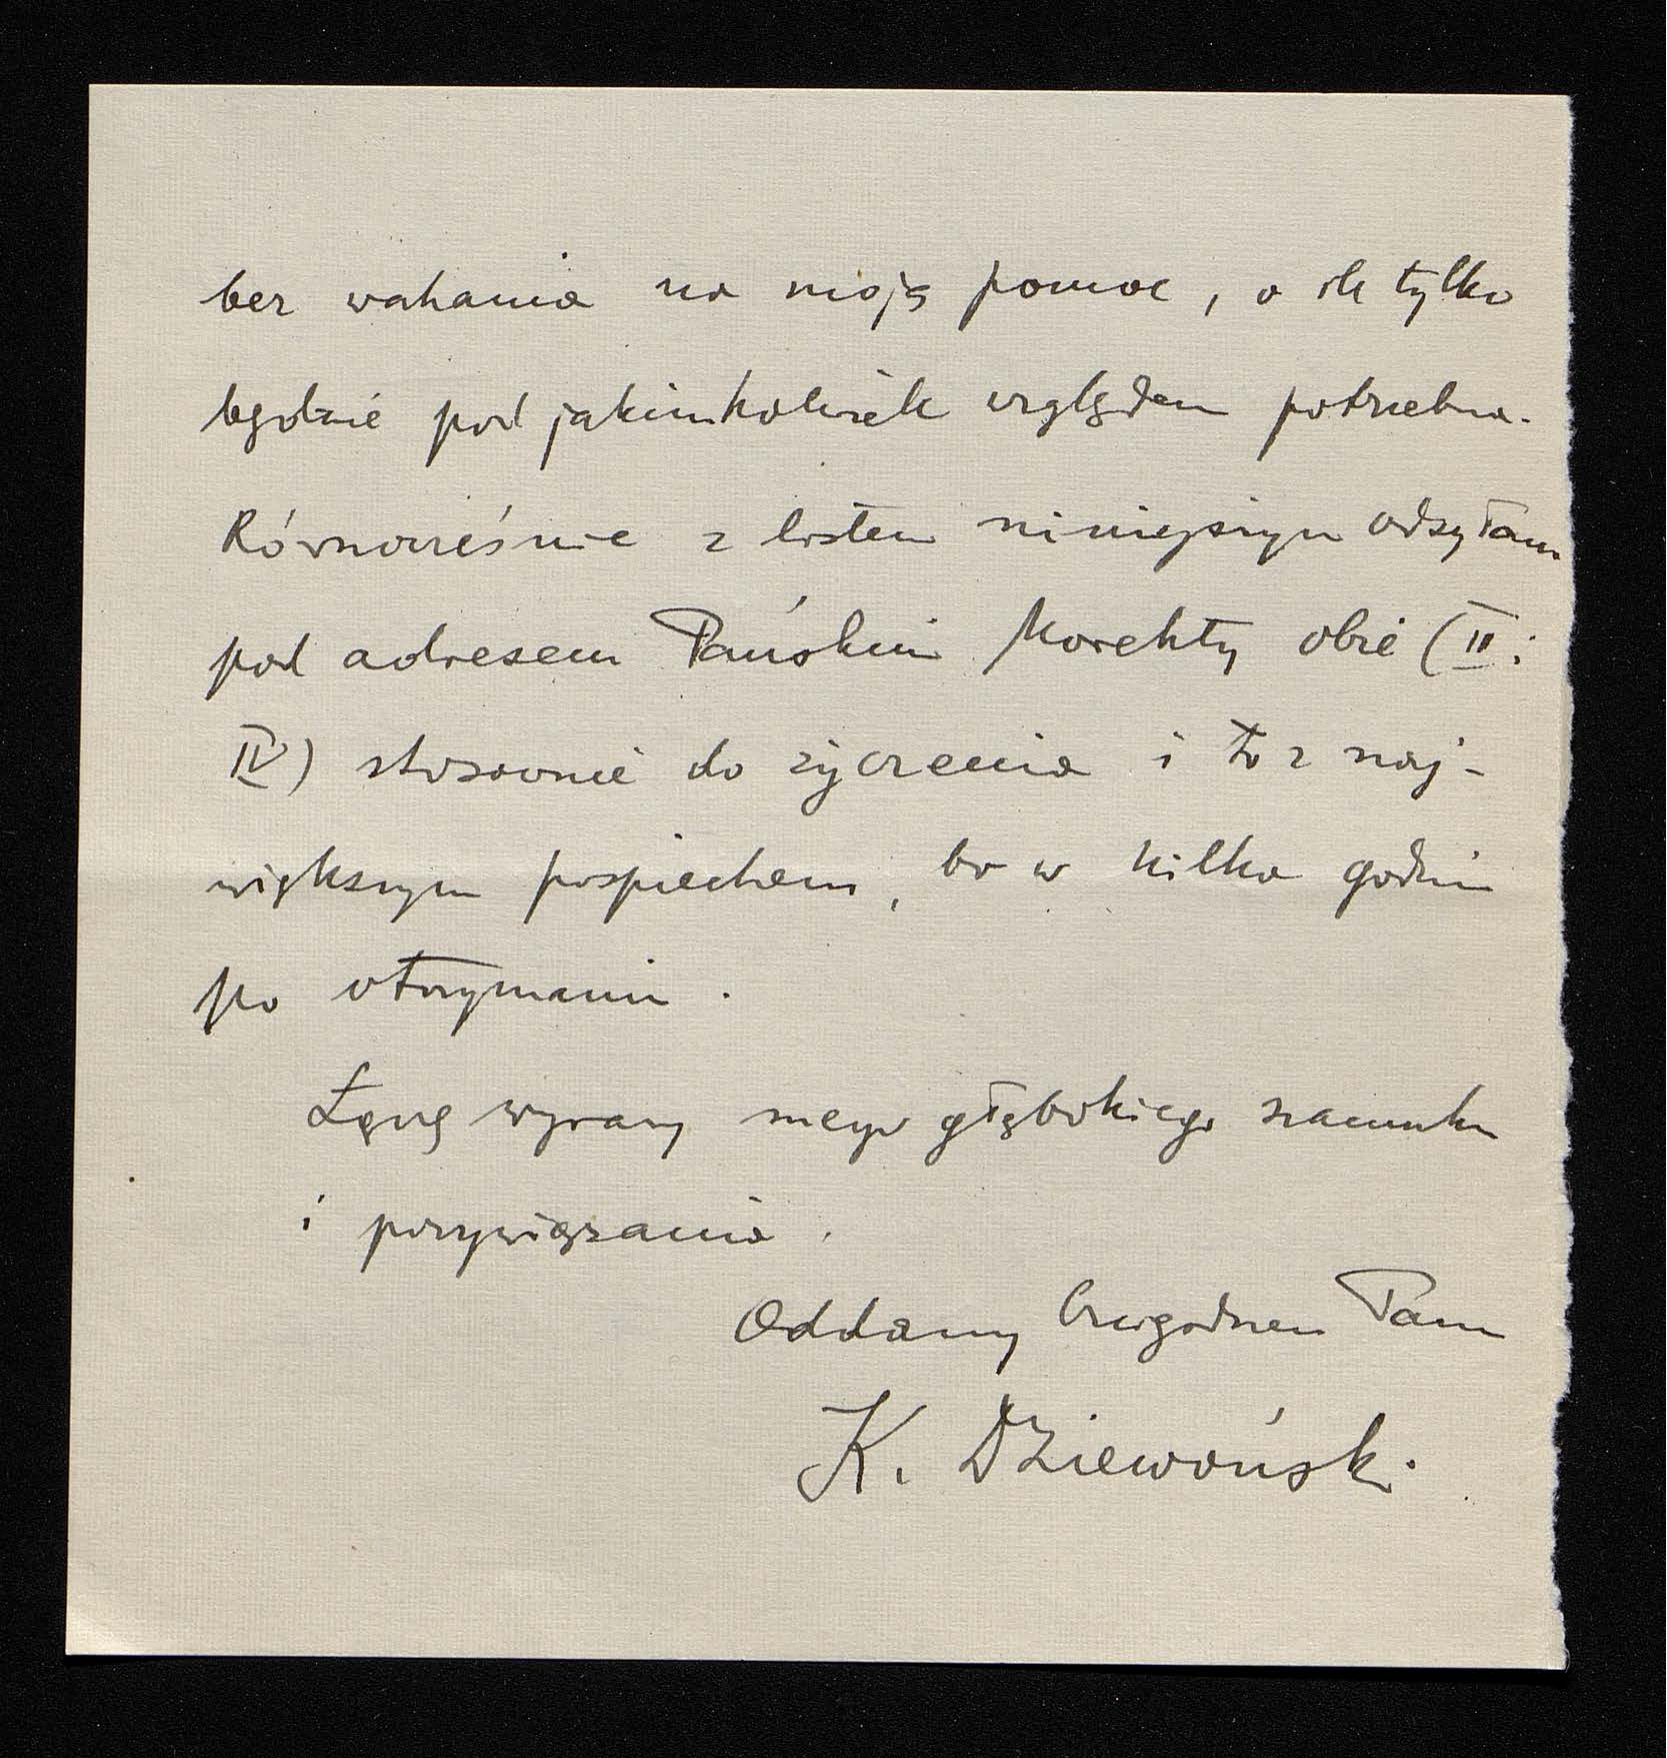 bez wahania na moją pomoc, o ile tylko
będzie pod jakimkolwiek względem potrzebna.
Równocześnie z listem niniejszym odsyłam
pod adresem Pańskim korekty obie (II i
IV) stosownie do życzenia i to z naj-
większym pospiechem, bo w kilka godzin
po otrzymaniu.
Łączę wyrazy mego głębokiego szacunku
i przywiązania.
Oddany Czcigodnemu Panu
K. Dziewoński